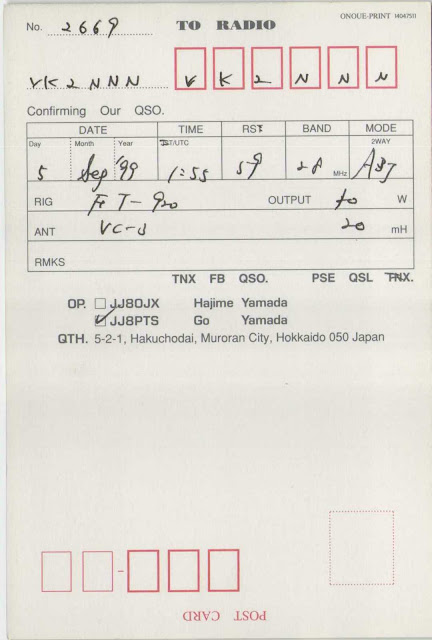 ONOUE-PRINT 14047511
No. 2669 TO RADIO
VK2NNN V K 2 N N N
Confirming Our QSO.
DATE TIME RST BAND MODE
Day Month Year JST/UTC MHz 2WAY
5 Sep '99 1:55 59 28
RIG FT-920 OUTPUT W
ANT 20 mH
RMKS
TNX FB QSO. PSE QSL TNX.
OP. JJ8OJX Hajime Yamada
JJ8PTS Go Yamada
QTH. 5-2-1, Hakuchodai, Muroran City, Hokkaido 050 Japan
POST CARD